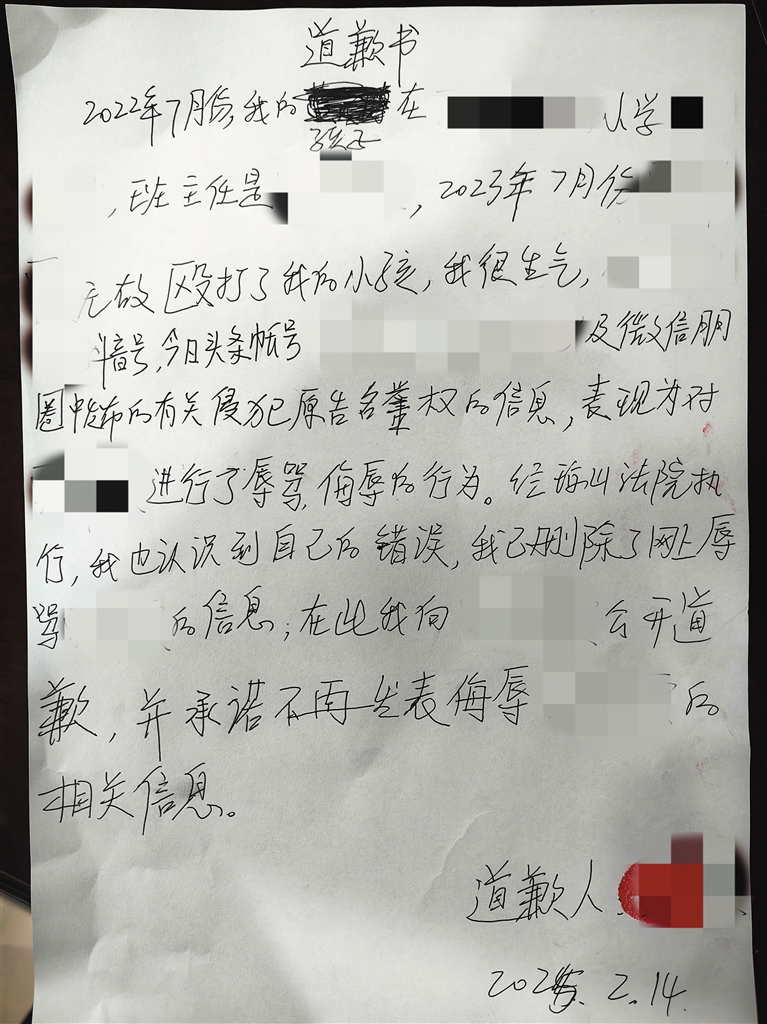 道歉书
2022年7月份,我的在 小学
孩子
,班主任是 ,2023年7月份
无故殴打了我的小孩,我很生气,
抖音号,今日头条帐号 及微信朋
圈中发布的有关侵犯原告名誉权的信息,表现为对
进行了辱骂,侮辱的行为。经 法院执
行,我也认识到自己的错误,我已删除了网上辱
骂 的信息,在此我向 公开道
歉,并承诺不再发表侮辱 的
相关信息。
道歉人
2025.2.14.